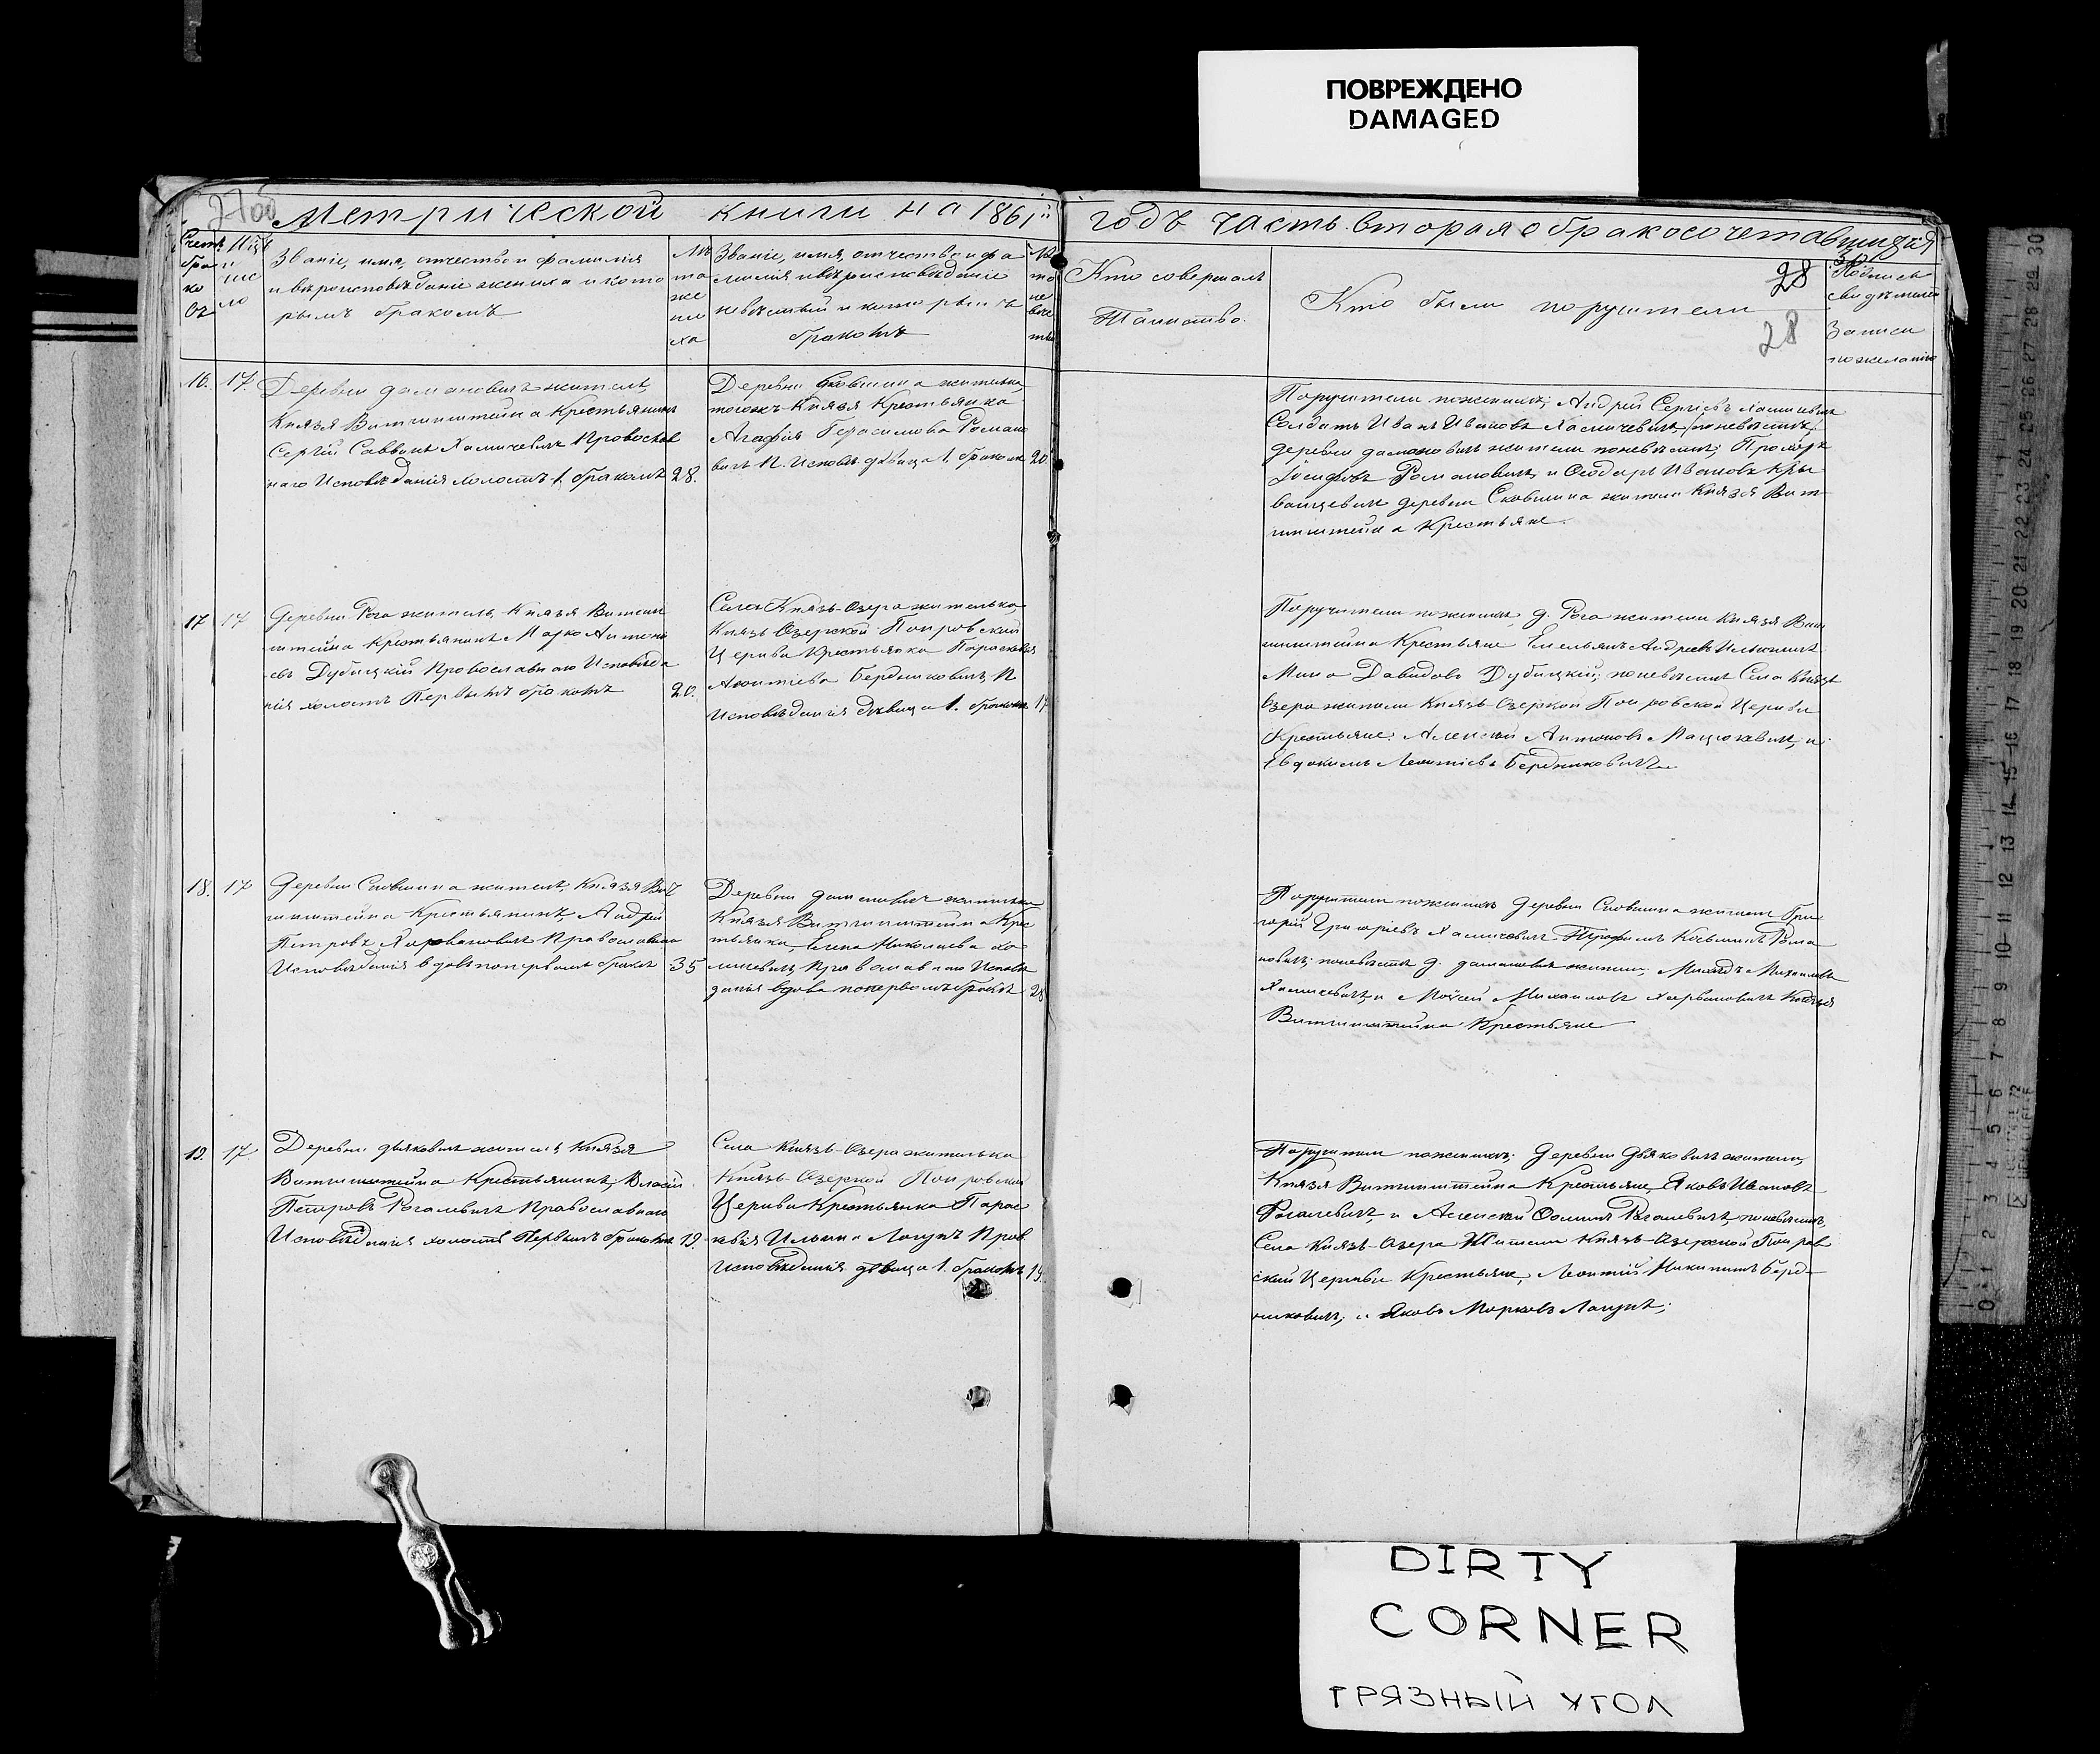 ПОВРЕЖДЕНО
DAMAGED
Метрической книги на 1861й
годъ часть вторая о бракосочетавшихся
Счетъ
брако
въ
чис
ло
Званіе, имя, отчество и фамилія
и вѣроисповѣданіе жениха и кото
рымъ бракомъ
Лѣ
та
же
ни
ха
Званіе, имя, отчество и фа
милія и вѣроисповѣданіе
невѣсты и которымъ
бракомъ
Лѣ
та
не
вѣс
ты
Кто совершалъ
Таинство.
Кто были поручители
28
28
Подпись
свидѣтелей
Записи
по желанію
16. 17.
Деревни Домановичъ житель,
Князя Витгинштейна Крестьянинъ
Сергій Саввинъ Православ
наго Исповѣданія холостъ 1. бракомъ 28.
Деревни житилька
тогожъ Князя Крестьянка
Агафія Герасимова Романо
вичъ П. Исповѣ. дѣвица 1. бракомъ 20.
Поручители по женихѣ; Андрей Сергіевъ
Солдатъ Иванъ Ивановъ
деревни Домановичъ жители по невѣстѣ; Прохоръ
Іосифовъ Романовичъ, и Ѳеодоръ Ивановъ Кры
ванцевичъ деревни Сковшина жители Князя Вит
гинштейна Крестьяне.
17 17
Деревни Рога житель, Князя Витгин
штейна Крестьянинъ Марко Антоні
евъ Дубицкій Православнаго Исповѣда
нія холостъ Первымъ бракомъ 20.
Села Князь-Озера жителька,
Князь Озерской Покровской
Церкви Крестьянка Параскевія
Леонтіева Бердниковичъ П.
Исповѣданія дѣвица 1. бракомъ 17
Поручители по женихѣ, д. Рога жители Князя Вит
гинштейна Крестьяне Емельянъ Андреевъ
Мина Давидовъ Дубицкій; по невѣстѣ Села Князь
Озера жители Князь-Озерской Покровской Церкви
Крестьяне: Алексѣй Антоновъ Мацюкевичъ, и
Евдокимъ Леонтіевъ Бердниковичъ.
18. 17
Деревни Сковшина житель, Князя Вит
гинштейна Крестьянинъ Андрей
Петровъ Харвановичъ Православнаго
Исповѣданія вдовъ по первомъ бракѣ 35
Деревни Домановичъ жителька
Князя Витгинштейна Крес
тьянка, Елена Николаева Ха
личевичъ Православнаго Исповѣ
данія вдова по первомъ бракѣ 28
Поручители по женихѣ деревни Сковшина жители Гри
горій Григоріевъ Трофимъ Косьминъ Рома
новичъ; по невѣстѣ д. Домановичъ жители; Михаилъ Михаиловъ
и Моисей Михаиловъ Харвановичъ Князя
Витгинштейна Крестьяне
19. 17.
Деревни Дьяковичъ житель, Князя
Витгинштейна Крестьянинъ, Власій
Петровъ Рогалевичъ Православнаго
Исповѣданія холостъ Первымъ бракомъ 19.
Села Князь-Озера жителька
Князь-Озерской Покровской
Церкви Крестьянка Парас
кевія Ильина Логунъ Прав.
Исповѣданія дѣвица 1. бракомъ 19.
Поручители по женихѣ; Деревни Дьяковичъ жители,
Князя Витгинштейна Крестьяне, Яковъ Ивановъ
Рогалевичъ, и Алексѣй Ѳоминъ Рогалевичъ, по невѣстѣ,
Села Князь-Озера Жители Князь-Озерской Покров
ской Церкви Крестьяне, Леонтій Никитинъ Берд-
никовичъ, и Яковъ Марковъ Логунъ;
DIRTY
CORNER
ГРЯЗНЫЙ УГОЛ
0 1 2 3 4 5 6 7 8 9 10 11 12 13 14 15 16 17 18 19 20 21 22 23 24 25 26 27 28 29 30